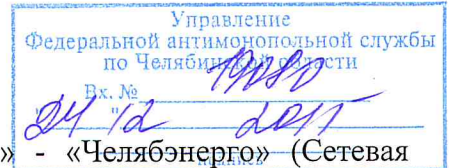 Управление
Федеральной антимонопольной службы
по Челябинской области
Вх. № 19080
"24" 12 2015
» - «Челябэнерго» (Сетевая